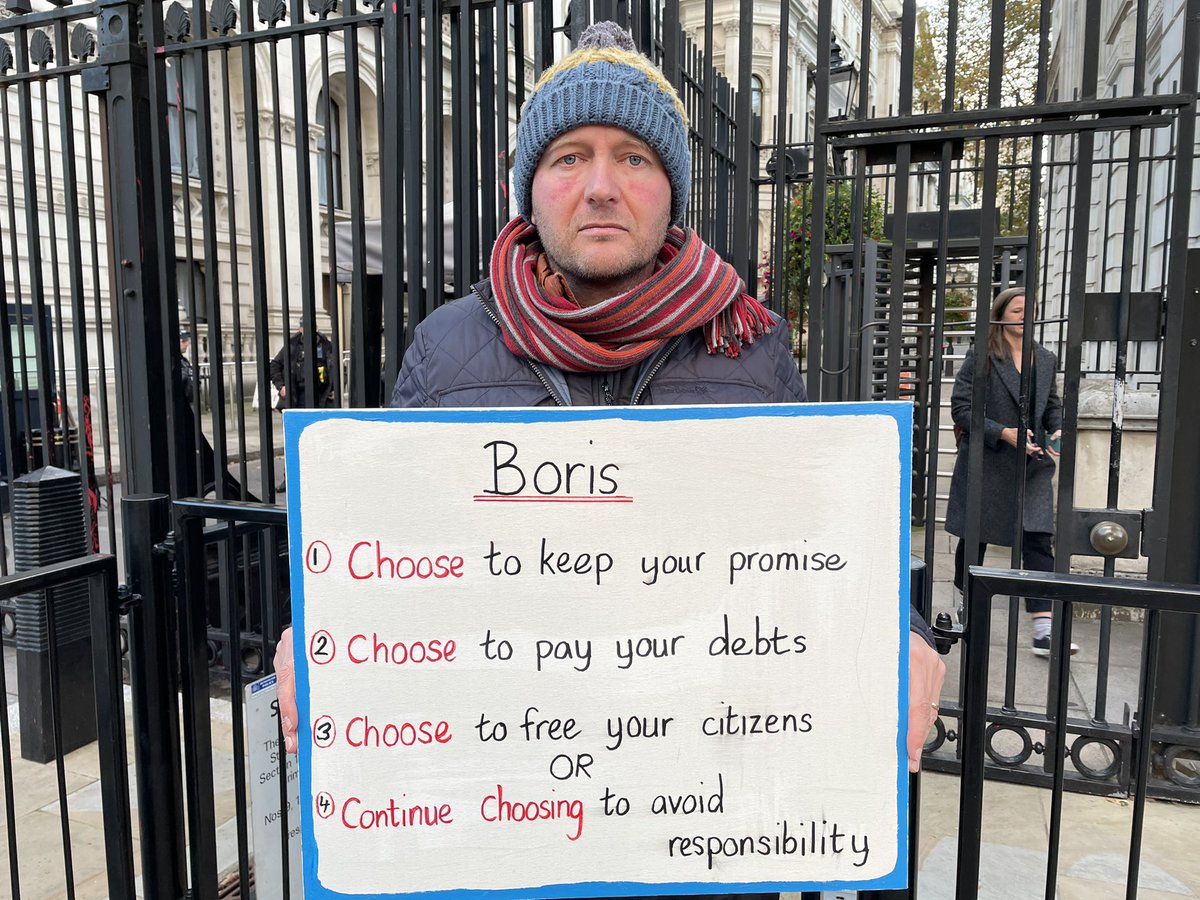 Boris
① Choose to keep your promise
② Choose to pay your debts
③ Choose to free your citizens
OR
④ Continue Choosing to avoid
responsibility
The
Section 1